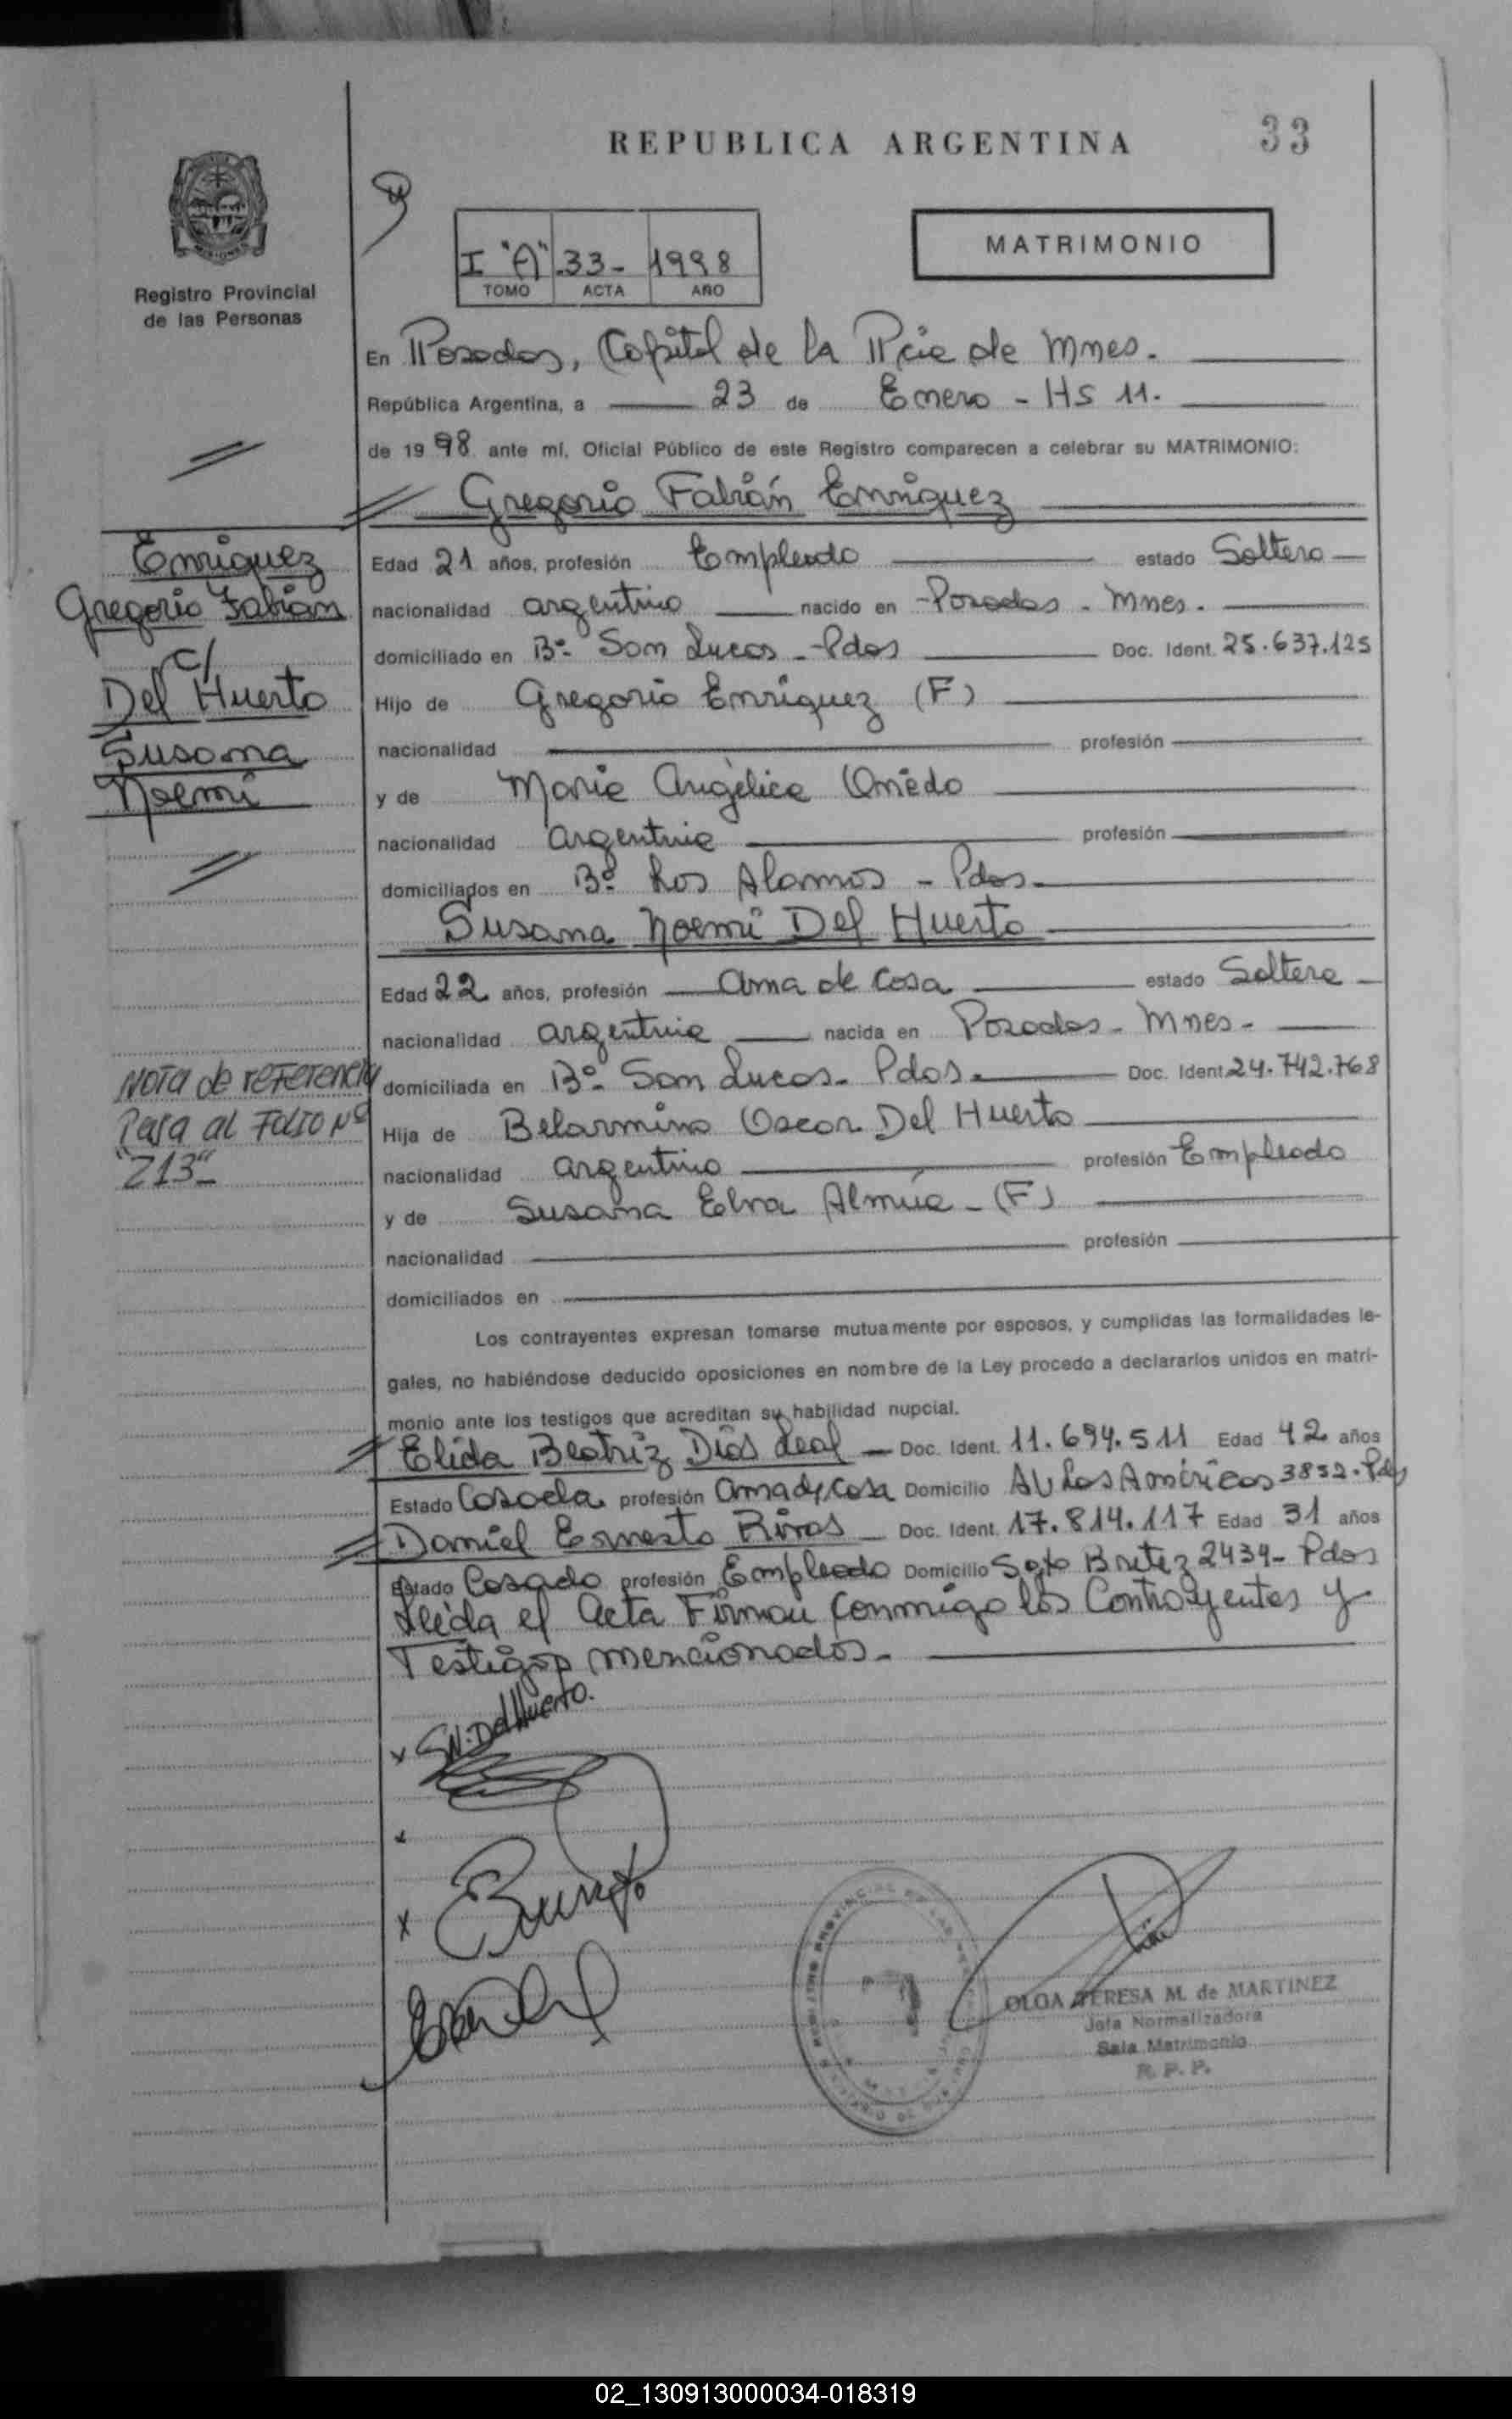 REPUBLICA ARGENTINA
33
MATRIMONIO
I "A" 33- 1998
TOMO ACTA AÑO
Registro Provincial
de las Personas
En Posadas, Capital de la Pcia de Mnes.
República Argentina, a 23 de Enero - HS 11.
de 1998 ante mí, Oficial Público de este Registro comparecen a celebrar su MATRIMONIO:
Gregorio Fabián Enriquez
Enriquez
Gregorio Fabian
c/
Del Huerto
Susana
Noemi
Edad 21 años, profesión Empleado estado Soltero
nacionalidad argentino nacido en Posadas - Mnes.
domiciliado en Bº San Lucas - Pdas Doc. Ident. 25.637.125
Hijo de Gregorio Enriquez (F)
nacionalidad profesión
y de Maria Angélica Omedo
nacionalidad argentina profesión
domiciliados en Bº Los Alamos - Pdas.
Susana Noemi Del Huerto
Edad 22 años, profesión Ama de casa estado Soltera
nacionalidad argentina nacida en Posadas - Mnes -
domiciliada en Bº San Lucas - Pdas. Doc. Ident 24.742.768
Nota de referencia
Pasa al Folio Nº
"213"
Hija de Belarmino Oscar Del Huerto
nacionalidad argentino profesión Empleado
y de Susana Elva Almúa - (F)
nacionalidad profesión
domiciliados en
Los contrayentes expresan tomarse mutuamente por esposos, y cumplidas las formalidades le-
gales, no habiéndose deducido oposiciones en nombre de la Ley procedo a declararlos unidos en matri-
monio ante los testigos que acreditan su habilidad nupcial.
Elida Beatriz Dias Leal - Doc. Ident. 11.694.511 Edad 42 años
Estado Casada profesión Ama de Casa Domicilio Av Las Américas 3852 - Pdas
Daniel Ernesto Rivas - Doc. Ident. 17.814.117 Edad 31 años
Estado Casado profesión Empleado Domicilio Sgto Britez 2434 - Pdas
Leída el Acta Firman conmigo los Contrayentes y
Testigos mencionados.
x S.N. Del Huerto.
x
x
OLGA TERESA M. de MARTINEZ
Jefa Normalizadora
Sala Matrimonio
R. P. P.
02_130913000034-018319